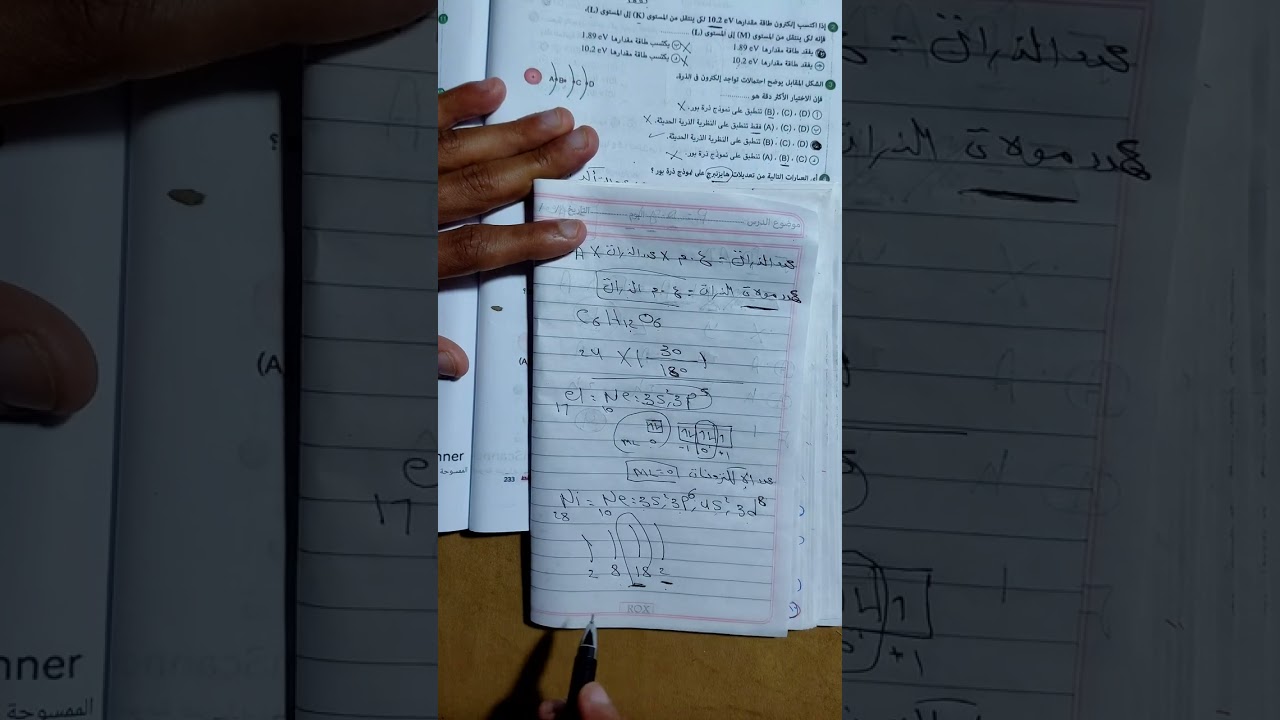 إذا اكتسب إلكترون طاقة مقدارها 10.2 eV لكى ينتقل من المستوى (K) إلى المستوى (L)،
فإنه لكى ينتقل من المستوى (M) إلى المستوى (L) ............
يفقد طاقة مقدارها 1.89 eV
يكتسب طاقة مقدارها 1.89 eV
يفقد طاقة مقدارها 10.2 eV
يكتسب طاقة مقدارها 10.2 eV
الشكل المقابل يوضح احتمالات تواجد إلكترون فى الذرة.
A B C D
فإن الاختيار الأكثر دقة هو ............
(B)، (C)، (D) تنطبق على نموذج ذرة بور.
(A)، (C)، (D) فقط تنطبق على النظرية الذرية الحديثة.
(B)، (C)، (D) تنطبق على النظرية الذرية الحديثة.
(A)، (B)، (C) تنطبق على نموذج ذرة بور.
أى العبارات التالية من تعديلات هايزنبرج على نموذج ذرة بور ؟
موضوع الدرس: التاريخ
عدد الذرات = ع.م × عدد الذرات × A
عدد مولات الذرات = ع.م الذرات
C6H12O6
24 × ( 30 / 180 )
17 Cl = 10 Ne: 3s2, 3p5
mL = 0
-1 0 +1
عدد الإلكترونات mL=0
28 Ni = 10 Ne: 3s2, 3p6, 4s2, 3d8
2 8 18 2
ROX
233
nner
الممسوحة
(A
17
+1
عدد الذرات =
عدد مولات الذرات